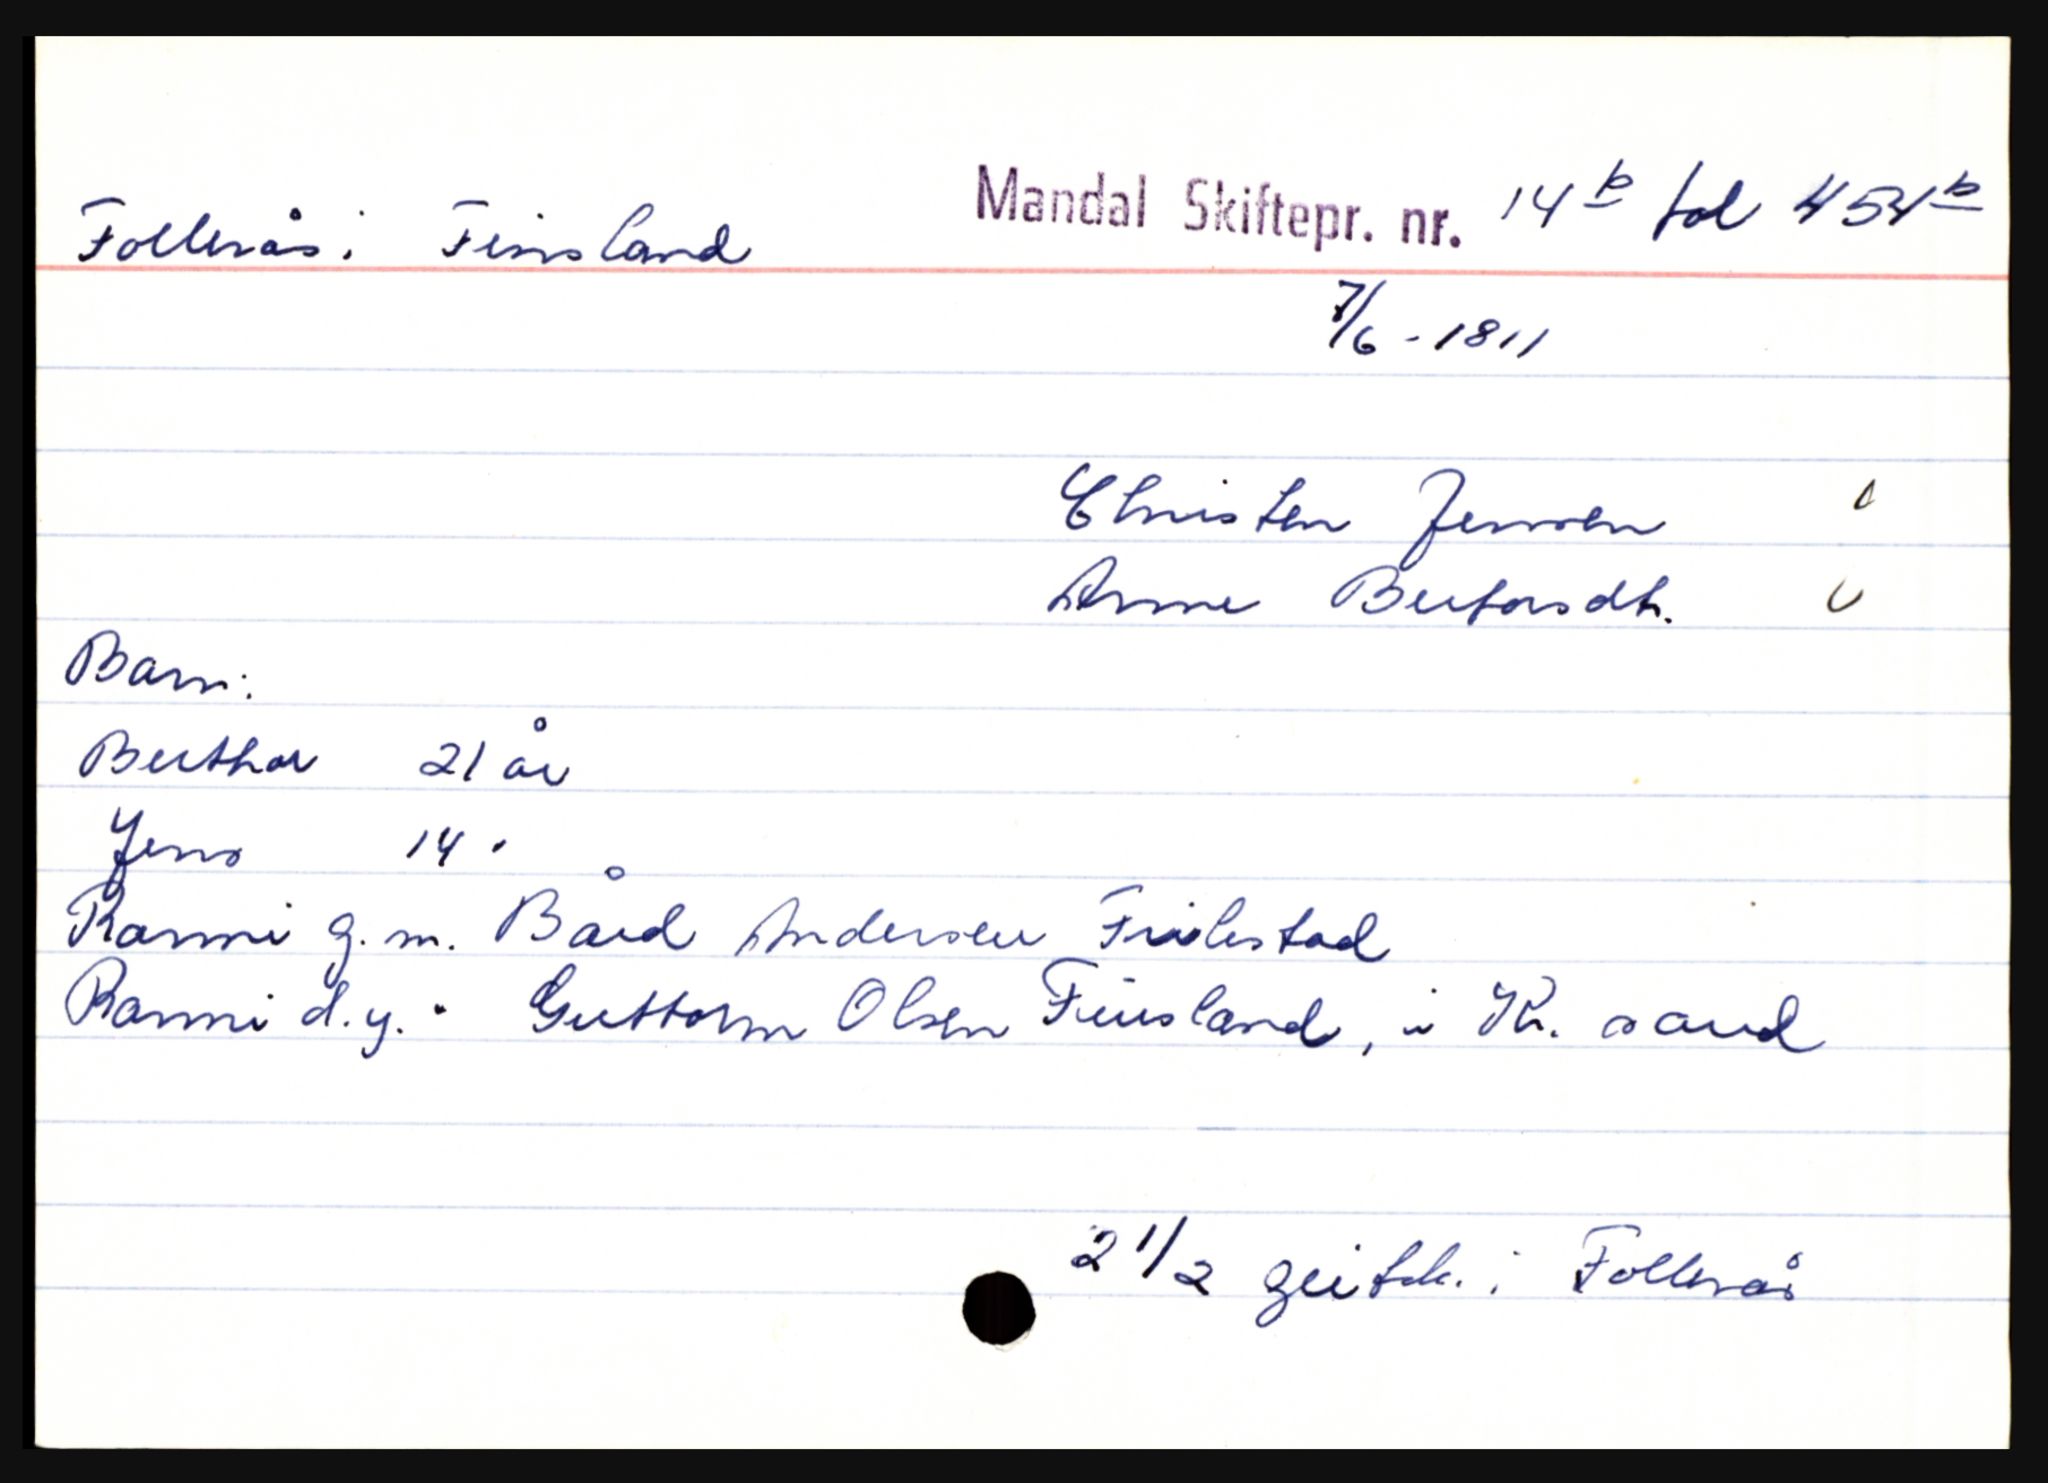 Follerås i Finsland Mandal Skiftepr. nr. 14b fol 454b
7/6 - 1811
Christen Jensen
Anne Bertorsdtr.
Barn:
Berthor 21 år
Jens 14 "
Ranni g.m. Bård Andersen Frilestad
Ranni d.y. " Guttorm Olsen Finsland, i Kr. sand
2 1/2 geitsk. i Follerås